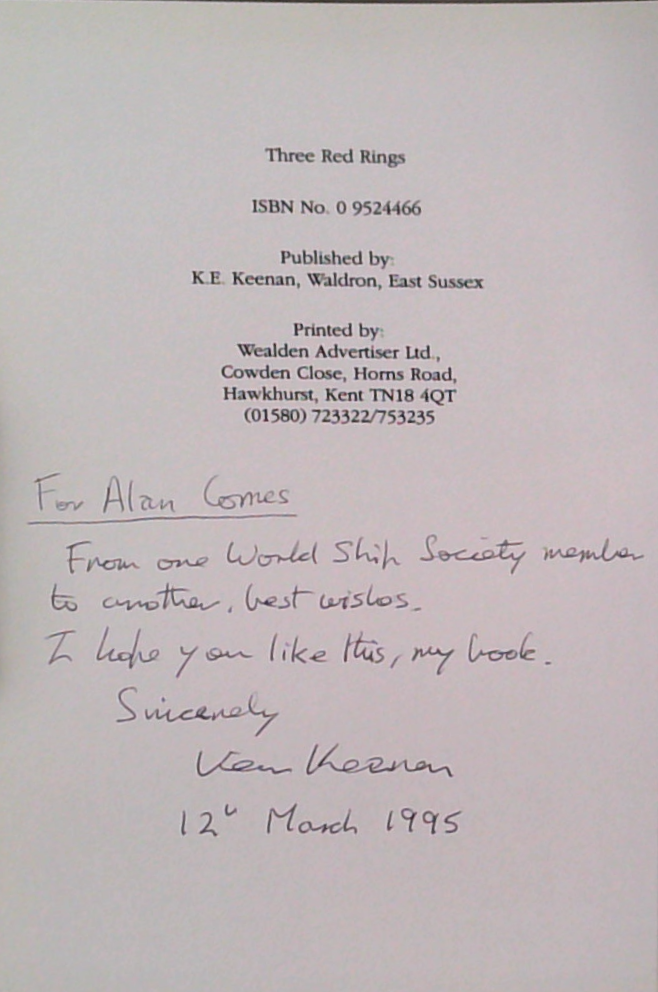 Three Red Rings
ISBN No. 0 9524466
Published by:
K.E. Keenan, Waldron, East Sussex
Printed by:
Wealden Advertiser Ltd.,
Cowden Close, Horns Road,
Hawkhurst, Kent TN18 4QT
(01580) 723322/753235
For Alan Comes
From one World Ship Society member
to another, best wishes.
I hope you like this, my book.
Sincerely
Ken Keenan
12th March 1995